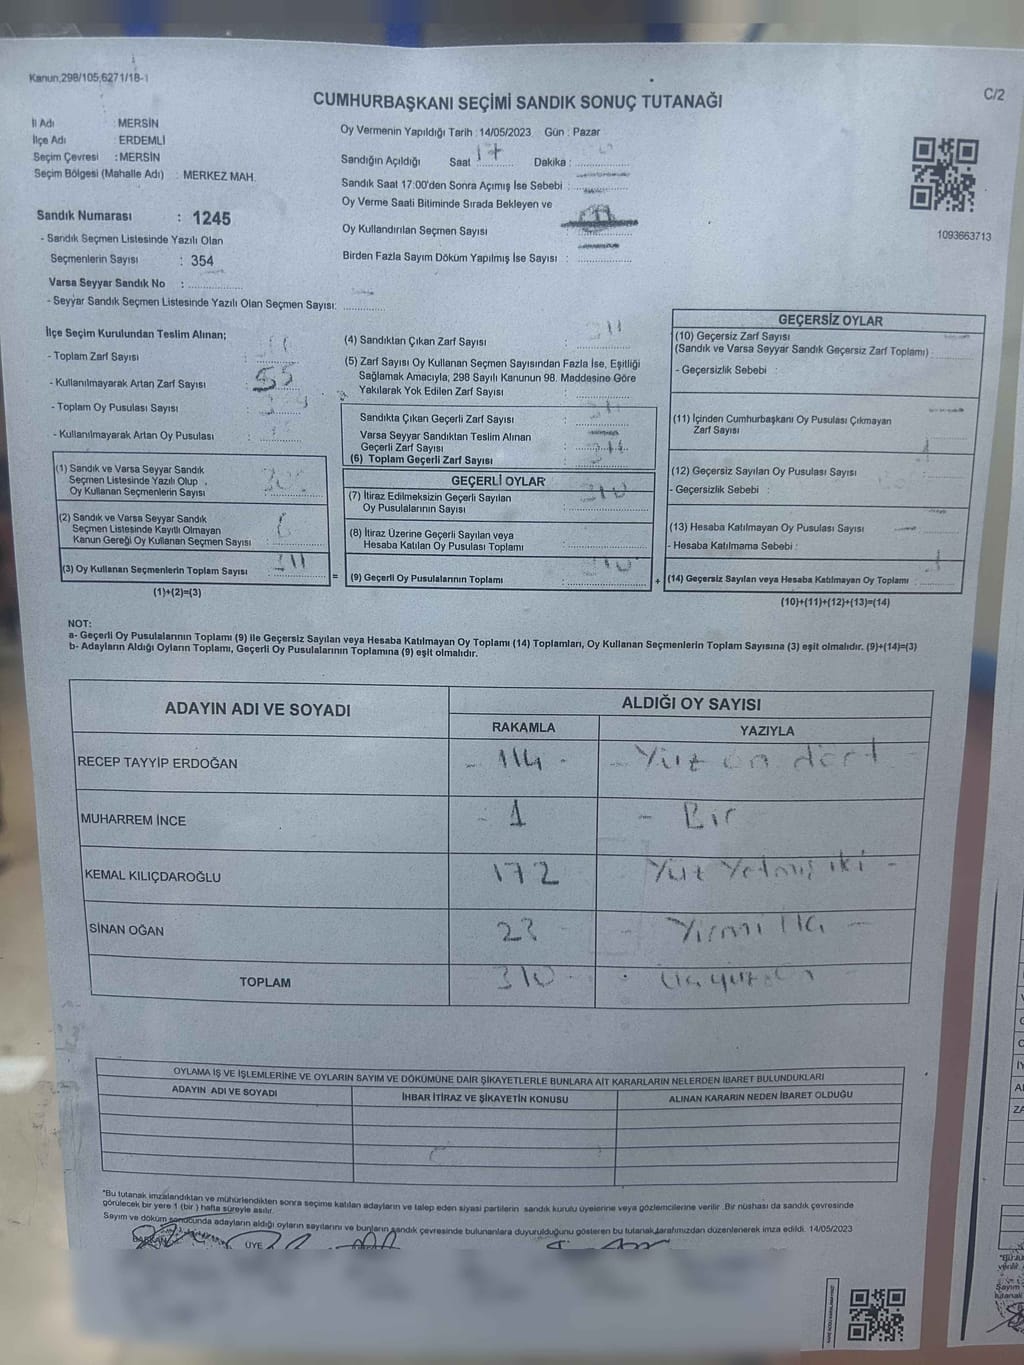 Kanun,298/105,6271/18-1
C/2
CUMHURBAŞKANI SEÇİMİ SANDIK SONUÇ TUTANAĞI
İl Adı : MERSİN
İlçe Adı : ERDEMLİ
Seçim Çevresi : MERSİN
Seçim Bölgesi (Mahalle Adı) : MERKEZ MAH.
Oy Vermenin Yapıldığı Tarih : 14/05/2023 Gün : Pazar
Sandığın Açıldığı Saat 17 Dakika :
Sandık Saat 17:00'den Sonra Açımış İse Sebebi :
Oy Verme Saati Bitiminde Sırada Bekleyen ve
Oy Kullandırılan Seçmen Sayısı :
Birden Fazla Sayım Döküm Yapılmış İse Sayısı :
1093663713
Sandık Numarası : 1245
- Sandık Seçmen Listesinde Yazılı Olan
Seçmenlerin Sayısı : 354
Varsa Seyyar Sandık No :
- Seyyar Sandık Seçmen Listesinde Yazılı Olan Seçmen Sayısı:
İlçe Seçim Kurulundan Teslim Alınan;
- Toplam Zarf Sayısı :
- Kullanılmayarak Artan Zarf Sayısı : 55
- Toplam Oy Pusulası Sayısı :
- Kullanılmayarak Artan Oy Pusulası :
(1) Sandık ve Varsa Seyyar Sandık
Seçmen Listesinde Yazılı Olup
Oy Kullanan Seçmenlerin Sayısı :
(2) Sandık ve Varsa Seyyar Sandık
Seçmen Listesinde Kayıtlı Olmayan
Kanun Gereği Oy Kullanan Seçmen Sayısı : 6
(3) Oy Kullanan Seçmenlerin Toplam Sayısı : 311
(1)+(2)=(3)
(4) Sandıktan Çıkan Zarf Sayısı : 311
(5) Zarf Sayısı Oy Kullanan Seçmen Sayısından Fazla İse, Eşitliği
Sağlamak Amacıyla, 298 Sayılı Kanunun 98. Maddesine Göre
Yakılarak Yok Edilen Zarf Sayısı :
Sandıkta Çıkan Geçerli Zarf Sayısı : 311
Varsa Seyyar Sandıktan Teslim Alınan
Geçerli Zarf Sayısı :
(6) Toplam Geçerli Zarf Sayısı : 311
GEÇERLİ OYLAR
(7) İtiraz Edilmeksizin Geçerli Sayılan
Oy Pusulalarının Sayısı : 310
(8) İtiraz Üzerine Geçerli Sayılan veya
Hesaba Katılan Oy Pusulası Toplamı :
= (9) Geçerli Oy Pusulalarının Toplamı : 310
GEÇERSİZ OYLAR
(10) Geçersiz Zarf Sayısı
(Sandık ve Varsa Seyyar Sandık Geçersiz Zarf Toplamı) :
- Geçersizlik Sebebi :
(11) İçinden Cumhurbaşkanı Oy Pusulası Çıkmayan
Zarf Sayısı :
(12) Geçersiz Sayılan Oy Pusulası Sayısı : 1
- Geçersizlik Sebebi :
(13) Hesaba Katılmayan Oy Pusulası Sayısı :
- Hesaba Katılmama Sebebi :
+ (14) Geçersiz Sayılan veya Hesaba Katılmayan Oy Toplamı : 1
(10)+(11)+(12)+(13)=(14)
NOT:
a- Geçerli Oy Pusulalarının Toplamı (9) ile Geçersiz Sayılan veya Hesaba Katılmayan Oy Toplamı (14) Toplamları, Oy Kullanan Seçmenlerin Toplam Sayısına (3) eşit olmalıdır. (9)+(14)=(3)
b- Adayların Aldığı Oyların Toplamı, Geçerli Oy Pusulalarının Toplamına (9) eşit olmalıdır.
ADAYIN ADI VE SOYADI
ALDIĞI OY SAYISI
RAKAMLA YAZIYLA
RECEP TAYYİP ERDOĞAN - 114 - - Yüz on dört
MUHARREM İNCE - 1 - Bir
KEMAL KILIÇDAROĞLU 172 Yüz Yetmiş iki -
SİNAN OĞAN 23 - Yirmi -
TOPLAM 310 - Üçyüzon
OYLAMA İŞ VE İŞLEMLERİNE VE OYLARIN SAYIM VE DÖKÜMÜNE DAİR ŞİKAYETLERLE BUNLARA AİT KARARLARIN NELERDEN İBARET BULUNDUKLARI
ADAYIN ADI VE SOYADI İHBAR İTİRAZ VE ŞİKAYETİN KONUSU ALINAN KARARIN NEDEN İBARET OLDUĞU
*Bu tutanak imzalandıktan ve mühürlendikten sonra seçime katılan adayların ve talep eden siyasi partilerin sandık kurulu üyelerine veya gözlemcilerine verilir. Bir nüshası da sandık çevresinde
görülecek bir yere 1 (bir ) hafta süreyle asılır.
Sayım ve döküm sonucunda adayların aldığı oyların sayılarını ve bunların sandık çevresinde bulunanlara duyurulduğunu gösteren bu tutanak tarafımızdan düzenlenerek imza edildi. 14/05/2023
BAŞKAN ÜYE